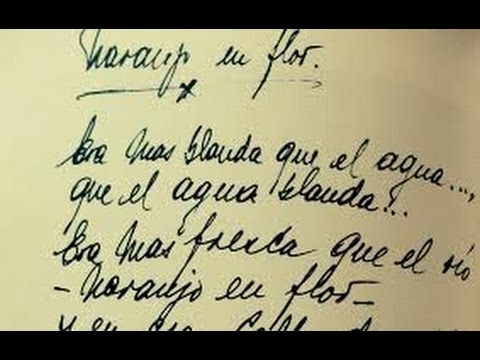 Naranjo en flor.
Era mas blanda que el agua...,
que el agua blanda...
Era mas fresca que el río
- Naranjo en flor -
Y en esa